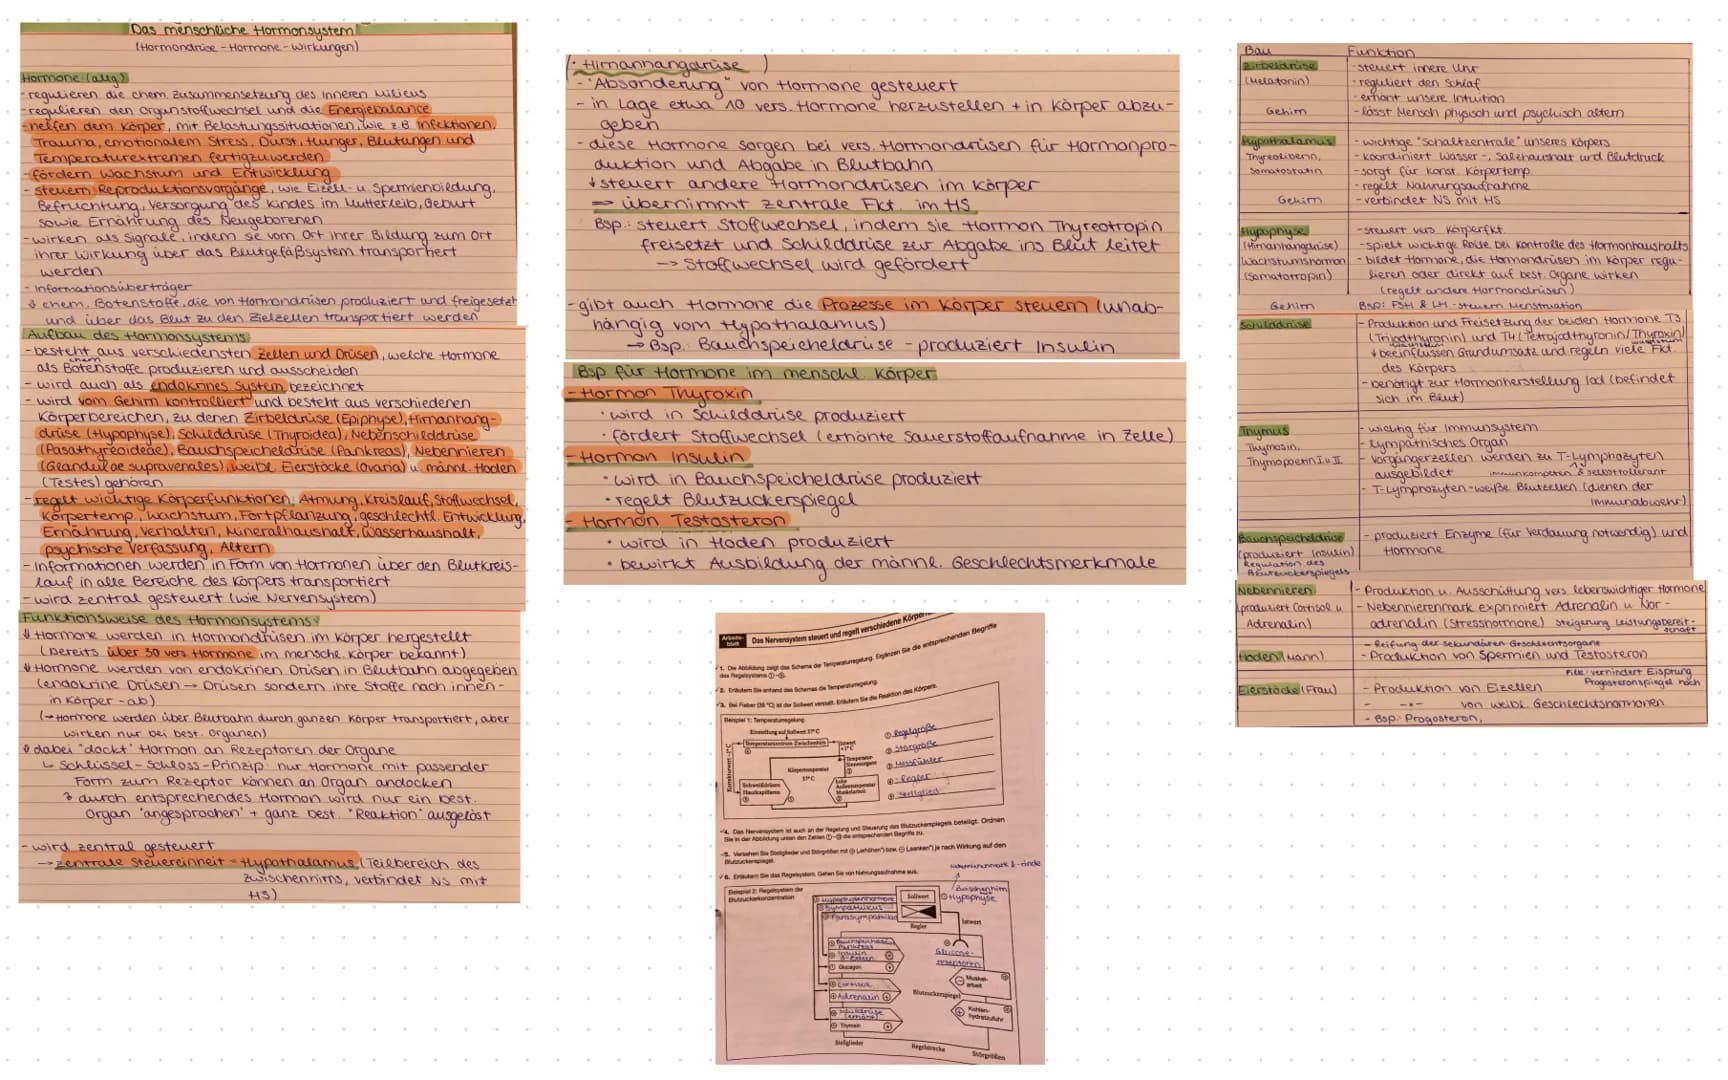 Das menschliche Hormonsystem
(Hormondrüse - Hormone - Wirkungen)
Hormone: (allg.)
- regulieren die chem. Zusammensetzung des inneren Milieus
- regulieren den Organstoffwechsel und die Energiebalance
- helfen dem Körper, mit Belastungssituationen, wie z.B. Infektionen,
Trauma, emotionalem Stress, Durst, Hunger, Blutungen und
Temperaturextremen fertigzuwerden
- fördern Wachstum und Entwicklung
- steuern Reproduktionsvorgänge, wie Eizell- u. Spermienbildung,
Befruchtung, Versorgung des Kindes im Mutterleib, Geburt
sowie Ernährung des Neugeborenen
- wirken als Signale, indem sie vom Ort ihrer Bildung zum Ort
ihrer Wirkung über das Blutgefäßsystem transportiert
werden
- Informationsüberträger
↓ chem. Botenstoffe, die von Hormondrüsen produziert und freigesetzt
und über das Blut zu den Zielzellen transportiert werden
Aufbau des Hormonsystems:
- besteht aus verschiedensten Zellen und Drüsen, welche Hormone
als chem. Botenstoffe produzieren und ausscheiden
- wird auch als endokrines System bezeichnet
- wird vom Gehirn kontrolliert und besteht aus verschiedenen
Körperbereichen, zu denen Zirbeldrüse (Epiphyse), Hirnanhang-
drüse (Hypophyse), Schilddrüse (Thyroidea), Nebenschilddrüse
(Pasathyreoideae), Bauchspeicheldrüse (Pankreas), Nebennieren
(Glandulae supravenales), weibl. Eierstöcke (Ovaria) u. männl. Hoden
(Testes) gehören
- regelt wichtige Körperfunktionen: Atmung, Kreislauf, Stoffwechsel,
Körpertemp., Wachstum, Fortpflanzung, geschlechtl. Entwicklung,
Ernährung, Verhalten, Mineralhaushalt, Wasserhaushalt,
psychische Verfassung, Altern
- Informationen werden in Form von Hormonen über den Blutkreis-
lauf in alle Bereiche des Körpers transportiert
- wird zentral gesteuert (wie Nervensystem)
Funktionsweise des Hormonsystems:
↓ Hormone werden in Hormondrüsen im Körper hergestellt
(bereits über 30 vers. Hormone im menschl. Körper bekannt)
↓ Hormone werden von endokrinen Drüsen in Blutbahn abgegeben
(endokrine Drüsen → Drüsen sondern ihre Stoffe nach innen -
in Körper - ab)
(→ Hormone werden über Blutbahn durch ganzen Körper transportiert, aber
wirken nur bei best. Organen)
↓ dabei "dockt" Hormon an Rezeptoren der Organe
↳ Schlüssel-Schloss-Prinzip: nur Hormone mit passender
Form zum Rezeptor können an Organ andocken
→ durch entsprechendes Hormon wird nur ein best.
Organ "angesprochen" + ganz best. "Reaktion" ausgelöst
- wird zentral gesteuert
→ zentrale Steuereinheit = Hypothalamus (Teilbereich des
Zwischenhirns, verbindet NS mit
HS)
(· Hirnanhangdrüse )
- "Absonderung" von Hormone gesteuert
- in Lage etwa 10 vers. Hormone herzustellen + in Körper abzu-
geben
- diese Hormone sorgen bei vers. Hormondrüsen für Hormonpro-
duktion und Abgabe in Blutbahn
↓ steuert andere Hormondrüsen im Körper
⇒ übernimmt zentrale Fkt. im HS
Bsp.: steuert Stoffwechsel, indem sie Hormon Thyreotropin
freisetzt und Schilddrüse zur Abgabe ins Blut leitet
→ Stoffwechsel wird gefördert
- gibt auch Hormone die Prozesse im Körper steuern (unab-
hängig vom Hypothalamus)
→ Bsp.: Bauchspeicheldrüse - produziert Insulin
Bsp für Hormone im menschl. Körper:
- Hormon Thyroxin
· wird in Schilddrüse produziert
· fördert Stoffwechsel (erhöhte Sauerstoffaufnahme in Zelle)
- Hormon Insulin
· wird in Bauchspeicheldrüse produziert
· regelt Blutzuckerspiegel
- Hormon Testosteron
· wird in Hoden produziert
· bewirkt Ausbildung der männl. Geschlechtsmerkmale
Arbeits-
blatt
Das Nervensystem steuert und regelt verschiedene
1. Die Abbildung zeigt das Schema der Temperaturregelung. Ergänzen Sie die entsprechenden Begriffe
des Regelsystems ①-⑤.
2. Erläutern Sie anhand des Schemas die Temperaturregelung.
3. Bei Fieber (39 °C) ist der Sollwert verstellt. Erläutern Sie die Reaktion des Körpers.
Beispiel 1: Temperaturregelung
Einstellung auf Sollwert 37°C
Temperaturzentrum Zwischenhirn
Körpertemperatur
37°C
Schweißdrüsen
Hautkapillaren
hohe
Außentemperatur
Muskelarbeit
① Regelgröße
② Störgröße
③ Messfühler
④ Regler
⑤ Stellglied
4. Das Nervensystem ist auch an der Regelung und Steuerung des Blutzuckerspiegels beteiligt. Ordnen
Sie in der Abbildung unten den Zahlen ①-⑩ die entsprechenden Begriffe zu.
5. Versehen Sie Stellglieder und Störgrößen mit ⊕ („erhöhen") bzw. ⊖ („senken") je nach Wirkung auf den
Blutzuckerspiegel.
6. Erläutern Sie das Regelsystem. Gehen Sie von Nahrungsaufnahme aus.
Nebennierenmark & -rinde
Beispiel 2: Regelsystem der
Blutzuckerkonzentration
Zwischenhirn
Hypophyse
Sympathikus
Parasympathikus
Sollwert
Regler
Istwert
Insulin
Glucagon
Cortisol
Adrenalin
Schilddrüse
Thyroxin
Glucose-
rezeptoren
Muskel-
arbeit
Blutzuckerspiegel
Kohlen-
hydratzufuhr
Stellglieder
Regelstrecke
Störgrößen
Bau Funktion
Zirbeldrüse - steuert innere Uhr
(Melatonin) - reguliert den Schlaf
- erhöht unsere Intuition
Gehirn - lässt Mensch physisch und psychisch altern
Hypothalamus - wichtige "Schaltzentrale" unseres Körpers
Thyreoliberin, - koordiniert Wasser-, Salzhaushalt und Blutdruck
Somatostatin - sorgt für konst. Körpertemp.
- regelt Nahrungsaufnahme
Gehirn - verbindet NS mit HS
Hypophyse - steuert vers. Körperfkt.
(Hirnanhangdrüse) - spielt wichtige Rolle bei Kontrolle des Hormonhaushalts
Wachstumshormon - bildet Hormone, die Hormondrüsen im Körper regu-
(Somatotropin) lieren oder direkt auf best. Organe wirken
(regelt andere Hormondrüsen)
Gehirn Bsp: FSH & LH - steuern Menstruation
Schilddrüse - Produktion und Freisetzung der beiden Hormone T3
(Triiodthyronin) und T4 (Tetrajodthyronin/Thyroxin)
↓ beeinflussen Grundumsatz und regeln viele Fkt.
des Körpers
- benötigt zur Hormonherstellung Iod (befindet
sich im Blut)
Thymus - wichtig für Immunsystem
Thymosin, - lymphatisches Organ
Thymopoetin I u. II - Vorgängerzellen werden zu T-Lymphozyten
ausgebildet immunkompetent & selbsttolerant
- T-Lymphozyten - weiße Blutzellen (dienen der
Immunabwehr)
Bauchspeicheldrüse - produziert Enzyme (für Verdauung notwendig) und
(produziert Insulin) Hormone
Regulation des
Blutzuckerspiegels
Nebennieren - Produktion u. Ausschüttung vers. lebenswichtiger Hormone
(produziert Cortisol u. - Nebennierenmark exprimiert Adrenalin u. Nor-
Adrenalin) adrenalin (Stresshormone) Steigerung Leistungsbereit-
schaft
- Reifung der sekundären Geschlechtsorgane
Hoden (Mann) - Produktion von Spermien und Testosteron
Pille: verhindert Eisprung
Progesteronspiegel hoch
Eierstöcke (Frau) - Produktion von Eizellen
- -"- von weibl. Geschlechtshormonen
- Bsp: Progosteron,